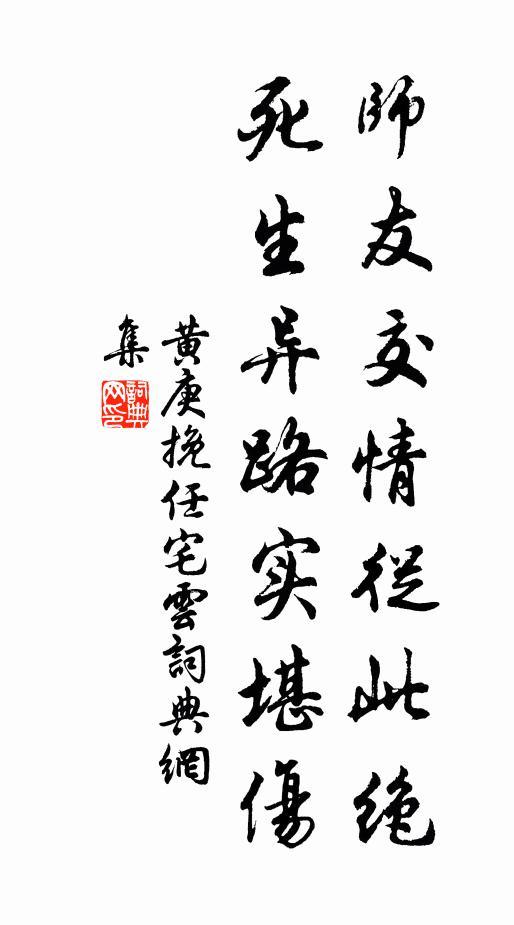 師友交情從此絶
死生异路实堪傷
黄庚挽任宅雲詞典網
集
詞典
网印